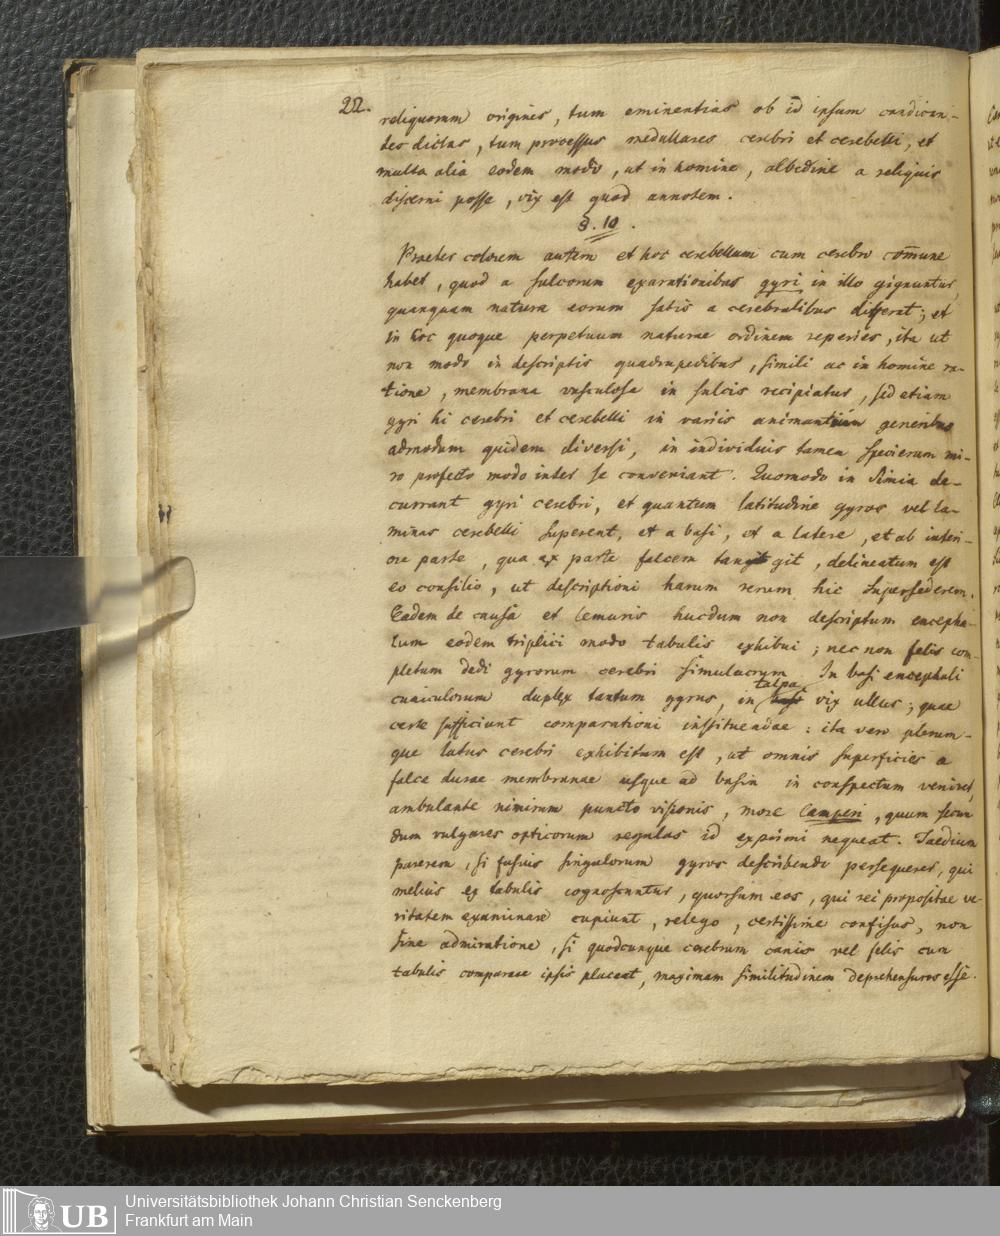 22.
reliquorum origines, tum eminentias ob id ipsum candican-
tes dictas, tum processus medullares cerebri et cerebelli, et
multa alia eodem modo, ut in homine, albedine a reliquis
discerni posse, vix est quod annotem.
§. 10.
Praeter colorem autem et hoc cerebellum cum cerebro com̄une
habet, quod a sulcorum exarationibus gyri in illo gignuntur,
quanquam natura eorum satis a cerebralibus differat; et
in hoc quoque perpetuum naturae ordinem reperies, ita ut
non modo in descriptis quadrupedibus, simili ac in homine ra-
tione, membrana vasculosa in sulcis recipiatur, sed etiam
gyri hi cerebri et cerebelli in variis animantium generibus
admodum quidem diversi, in individuis tamen specierum mi-
ro profecto modo inter se conveniant. Quomodo in Simia de-
currant gyri cerebri, et quantum latitudine gyros vel la-
minas cerebelli superent, et a basi, et a latere, et ab interi-
ore parte, qua ex parte falcem tangit, delineatum est
eo consilio, ut descriptioni harum rerum hic supersederem.
Eadem de causa et Lemuris hucdum non descriptum encepha-
lum eodem triplici modo tabulis exhibui; nec non felis com-
pletum dedi gyrorum cerebri simulacrum. In basi encephali
cuniculorum duplex tantum gyrus, in talpa vix ullus; quae
certe sufficiunt comparationi instituendae: ita vero plerum-
que latus cerebri exhibitum est, ut omnis superficies a
falce durae membranae usque ad basin in conspectum veniret,
ambulante nimirum puncto visionis, more Camperi, quum secun
dum vulgares opticorum regulas id exprimi nequeat. Taedium
parerem, si fusius singulorum gyros describendo persequerer, qui
melius ex tabulis cognoscuntur, quorsum eos, qui rei propositae ve-
ritatem examinare cupiunt, relego, certissime confisus, non
sine admiratione, si quodcunque cerebrum canis vel felis cum
tabulis comparare ipsis placeat, maximam similitudinem deprehensuros esse.
UB
Universitätsbibliothek Johann Christian Senckenberg
Frankfurt am Main